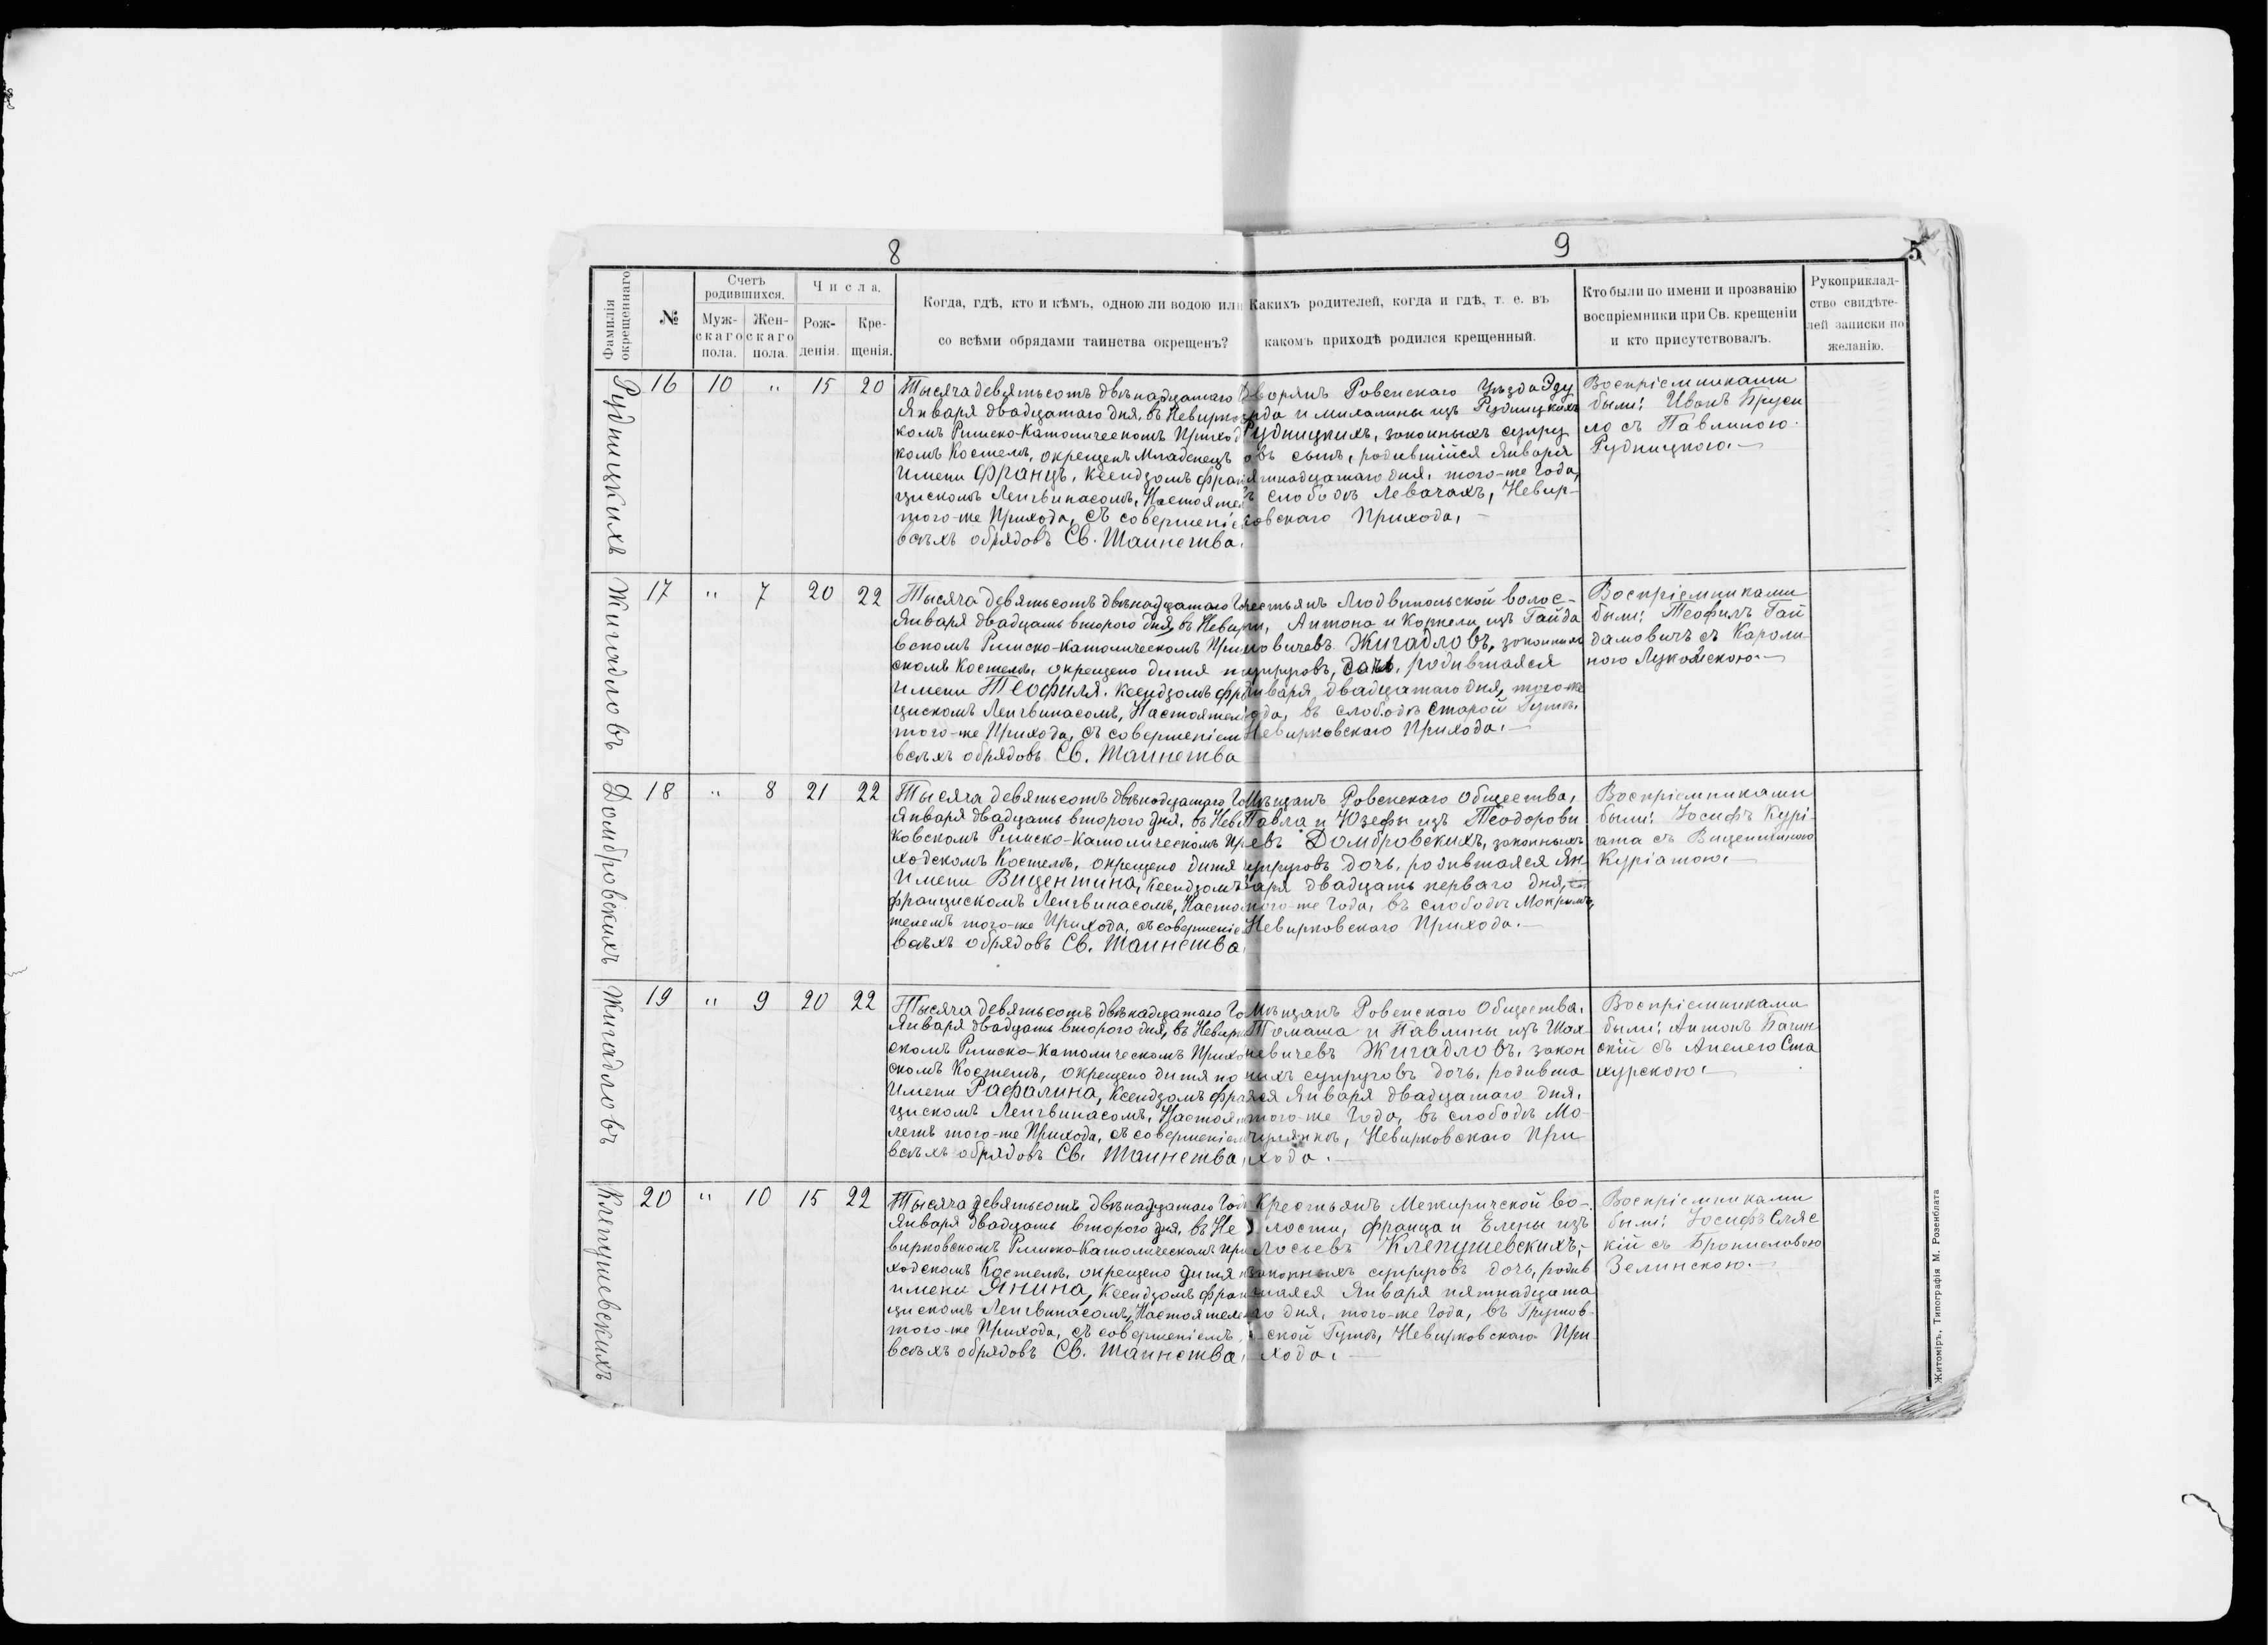 8
9
5
Фамилія окрещеннаго
№
Счетъ родившихся.
Муж-
скаго
пола.
Жен-
скаго
пола.
Числа.
Рож-
денія.
Кре-
щенія.
Когда, гдѣ, кто и кѣмъ, одною ли водою или
со всѣми обрядами таинства окрещенъ?
Какихъ родителей, когда и гдѣ, т. е. въ
какомъ приходѣ родился крещенный.
Кто были по имени и прозванію
воспріемники при Св. крещеніи
и кто присутствовалъ.
Рукоприклад-
ство свидѣте-
лей записки по
желанію.
Рудницкихъ
16 10 " 15 20
Тысяча девятьсотъ двѣнадцатаго
Января двадцатаго дня, въ Невирко
комъ Римско-Католическомъ Приход
комъ Костелѣ, окрещенъ Младенецъ
Имени Францъ, Ксендзомъ Фран
цискомъ Ленгвинасомъ, Настояте
того-же Прихода, съ совершеніе
всѣхъ обрядовъ Св. Таинства.
Дворянъ Ровенскаго Уѣзда Эду
рда и Михалины изъ Рудницкихъ
Рудницкихъ, законныхъ супру
овъ сынъ, родившійся Января
ятнадцатаго дня, того-же Года,
въ слободѣ Левачахъ, Невир-
ковскаго Прихода.
Воспріемниками
были: Иванъ Бруси
ло съ Павлиною
Рудницкою.
Жигадловъ
17 " 7 20 22
Тысяча девятьсотъ двѣнадцатаго Го
Января двадцать второго дня, въ Невирк
вскомъ Римско-Католическомъ При
скомъ Костелѣ, окрещено дитя п
Имени Теофиля, Ксендзомъ Фр
цискомъ Ленгвинасомъ, Настояте
того-же Прихода, съ совершеніем
всѣхъ обрядовъ Св. Таинства
рестьянъ Людвипольской волос-
ти, Антона и Корнели изъ Гайда
мовичевъ Жигадловъ, законных
супруговъ, дочь, родившаяся
нваря двадцатаго дня, того-же
ода, въ слободѣ Старой Гутѣ,
Невирковскаго Прихода.
Воспріемниками
были: Теофилъ Гай
дамовичъ съ Кароли
ною Лукомскою.
Домбровскихъ
18 " 8 21 22
Тысяча девятьсотъ двѣнадцатаго Го
Января двадцать второго дня, въ Нев
ковскомъ Римско-Католическомъ Пр
ходскомъ Костелѣ, окрещено дитя
Имени Вицентина, Ксендзомъ
Францискомъ Ленгвинасомъ, Насто
телемъ того-же Прихода, съ совершеніе
всѣхъ обрядовъ Св. Таинства.
Мѣщанъ Ровенскаго Общества,
Павла и Юзефы изъ Теодорови
евъ Домбровскихъ, законныхъ
супруговъ дочь, родившаяся Ян
варя двадцать перваго дня,
того-же Года, въ слободѣ Мокромъ,
Невирковскаго Прихода.
Воспріемниками
были: Іосифъ Курі-
ата съ Вицентиною
Куріатою.
Жигадловъ
19 " 9 20 22
Тысяча девятьсотъ двѣнадцатаго Го
Января двадцать второго дня, въ Невирк
скомъ Римско-Католическомъ Прихо
скомъ Костелѣ, окрещено дитя по
Имени Рафалина, Ксендзомъ Фра
цискомъ Ленгвинасомъ, Настоя
лемъ того-же Прихода, съ совершеніем
всѣхъ обрядовъ Св. Таинства,
Мѣщанъ Ровенскаго Общества,
Томаша и Павлины изъ Шах-
невичевъ Жигадловъ, закон
ныхъ супруговъ дочь, родивша
яся Января двадцатаго дня,
того-же Года, въ слободѣ Мо-
чулянкѣ, Невирковскаго При
хода.
Воспріемниками
были: Антонъ Багин
скій съ Анелею Ста
хурскою.
Клепушевскихъ
20 " 10 15 22
Тысяча девятьсотъ двѣнадцатаго Года
Января двадцать второго дня, въ Не
вирковскомъ Римско-Католическомъ При
ходскомъ Костелѣ, окрещено дитя
имени Янина, Ксендзомъ Фран
цискомъ Ленгвинасомъ, Настояте
того-же Прихода, съ совершеніемъ
всѣхъ обрядовъ Св. Таинства.
Крестьянъ Межиричской во-
лости, Франца и Елены изъ
Лосьевъ Клепушевскихъ,
законныхъ супруговъ дочь, родив
шаяся Января пятнадцата
го дня, того-же Года, въ Грушов-
ской Гутѣ, Невирковскаго При
хода.
Воспріемниками
были: Іосифъ Сляс
кій съ Брониславою
Зелинскою.
Житоміръ. Типографія М. Розенблата